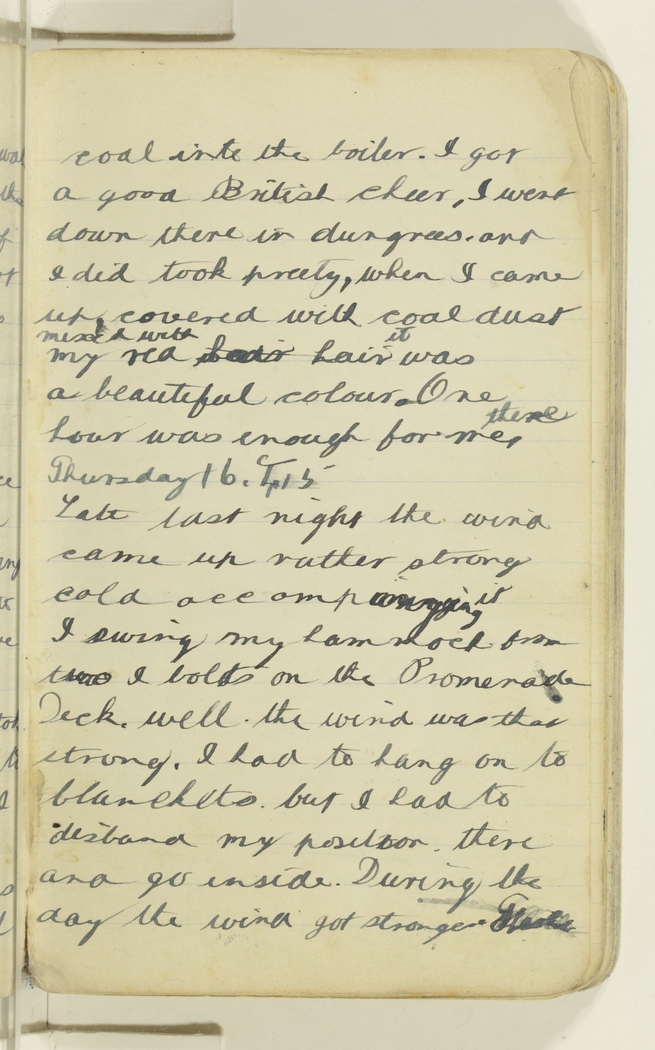 coal into the boiler. I got
a good British cheer, I went
down there in dungrees. and
I did took preety, when I came
up, covered with coal dust
mixed with it
my red hair was
a beautiful colour. One
there
hour was enough for me,
Thursday 16.
Late last night the wind
came up rather strong
cold accompanying it
I swing my hammock from
two I bolts on the Promenade
Deck. well. the wind was that
strong. I had to hang on to
blankets. but I had to
disband my position. there
and go inside. During the
day the wind got stronger